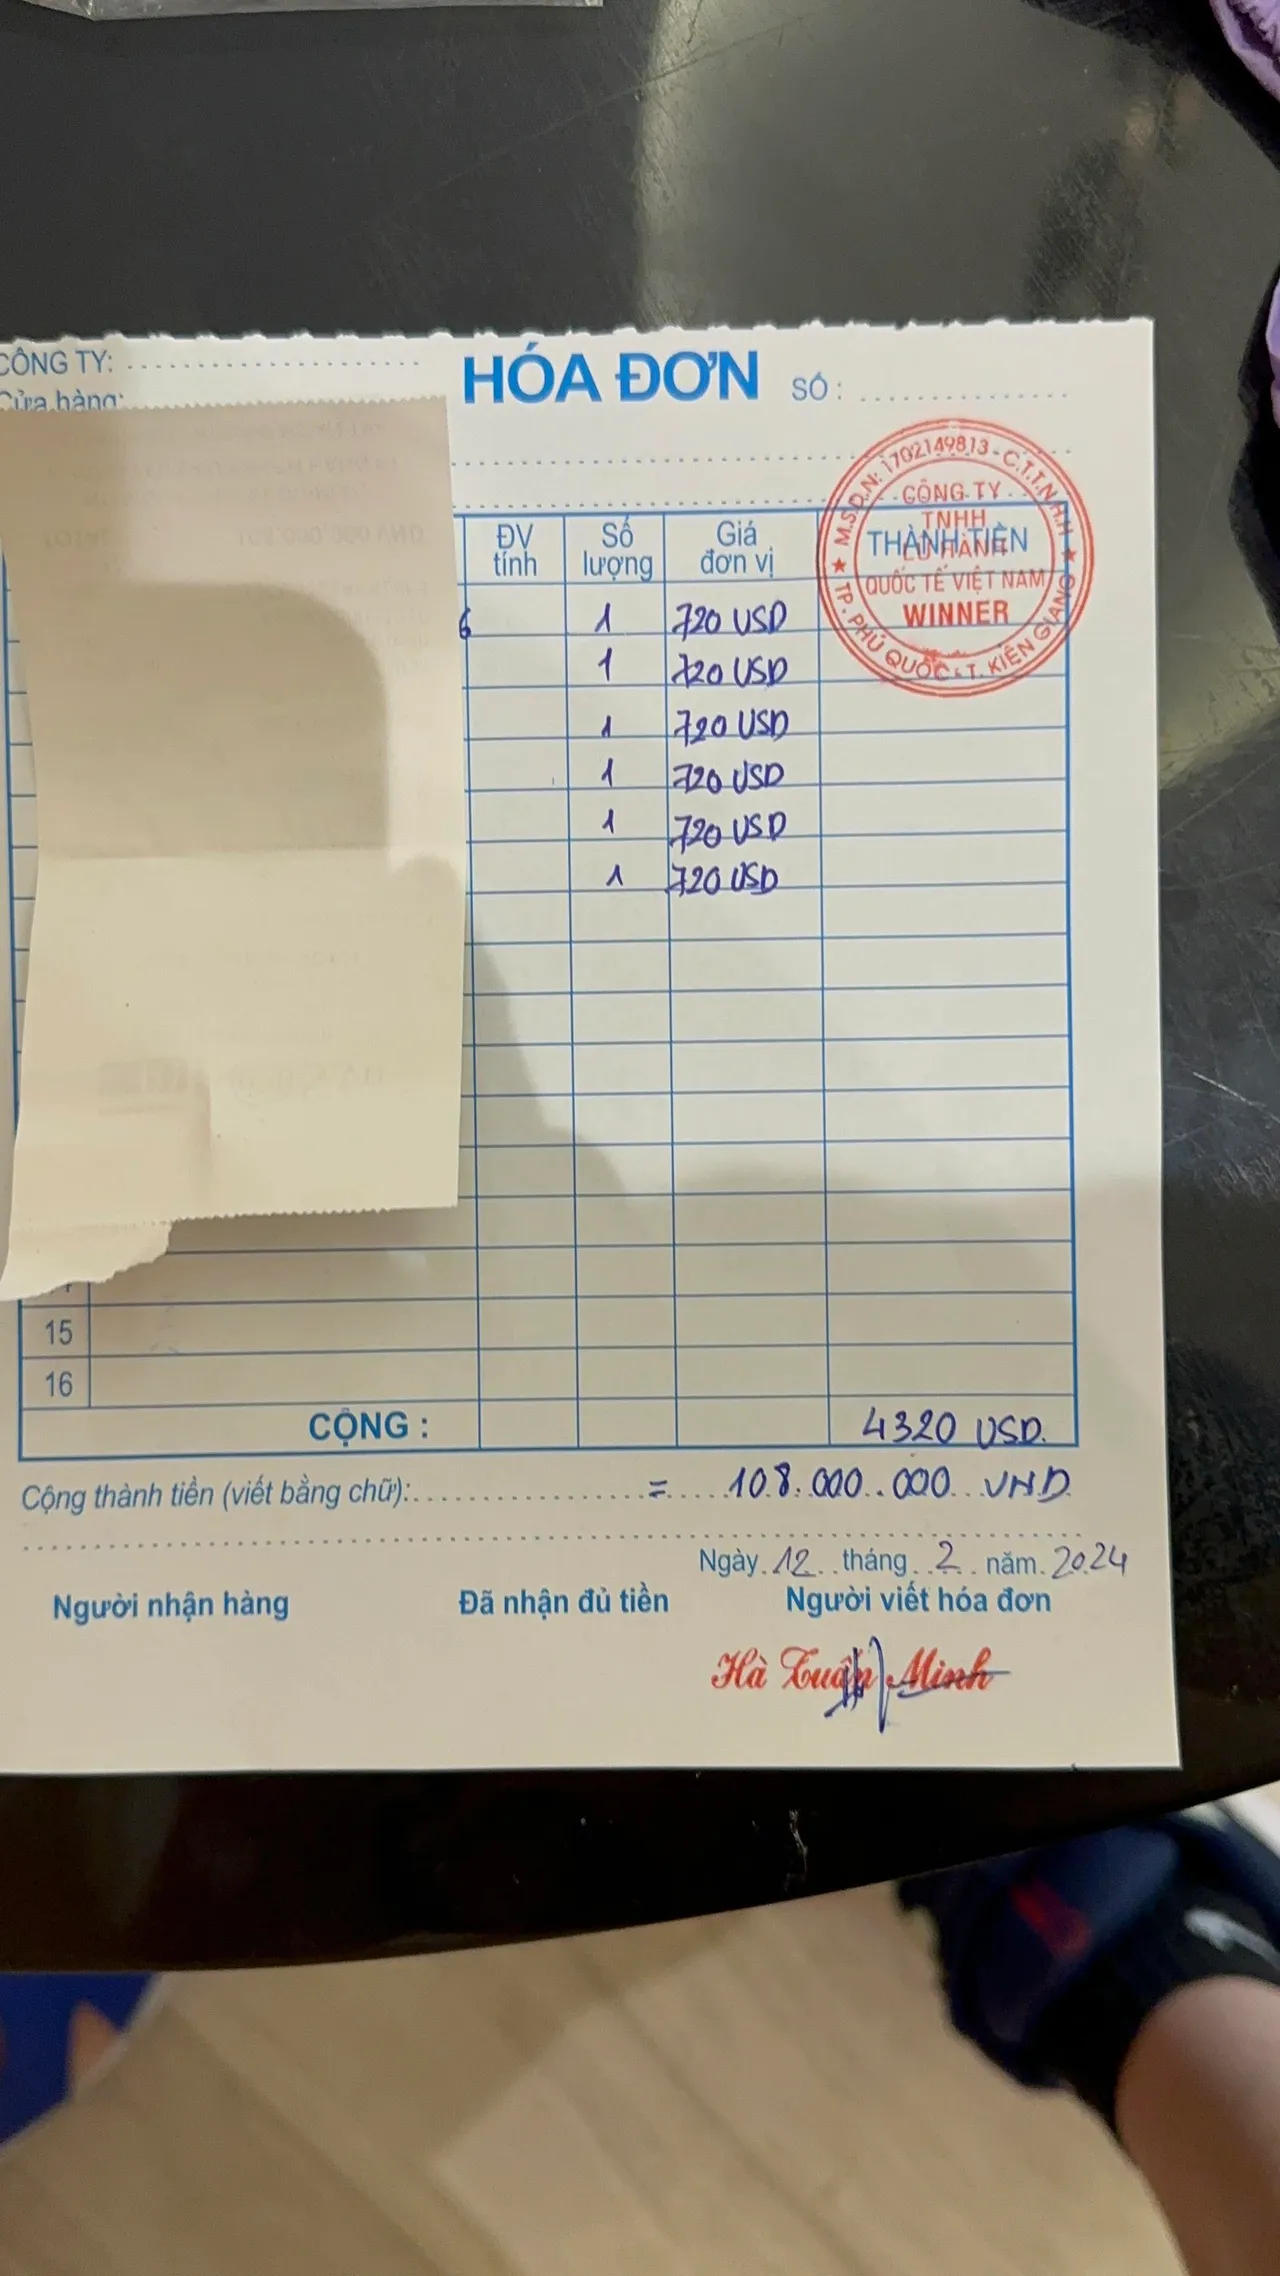 CÔNG TY:
HÓA ĐƠN
SỐ:
Cửa hàng:
M.S.D.N: 1702149813 - C.T.T.N.H.H
CÔNG TY
TNHH
LỮ HÀNH
QUỐC TẾ VIỆT NAM
WINNER
TP. PHÚ QUỐC - T. KIÊN GIANG
ĐV tính
Số lượng
Giá đơn vị
THÀNH TIỀN
6 1 720 USD
1 720 USD
1 720 USD
1 720 USD
1 720 USD
1 720 USD
15
16
CỘNG : 4320 USD.
Cộng thành tiền (viết bằng chữ): = 108.000.000 VND
Ngày 12 tháng 2 năm 2024
Người nhận hàng
Đã nhận đủ tiền
Người viết hóa đơn
Hà Tuấn Minh